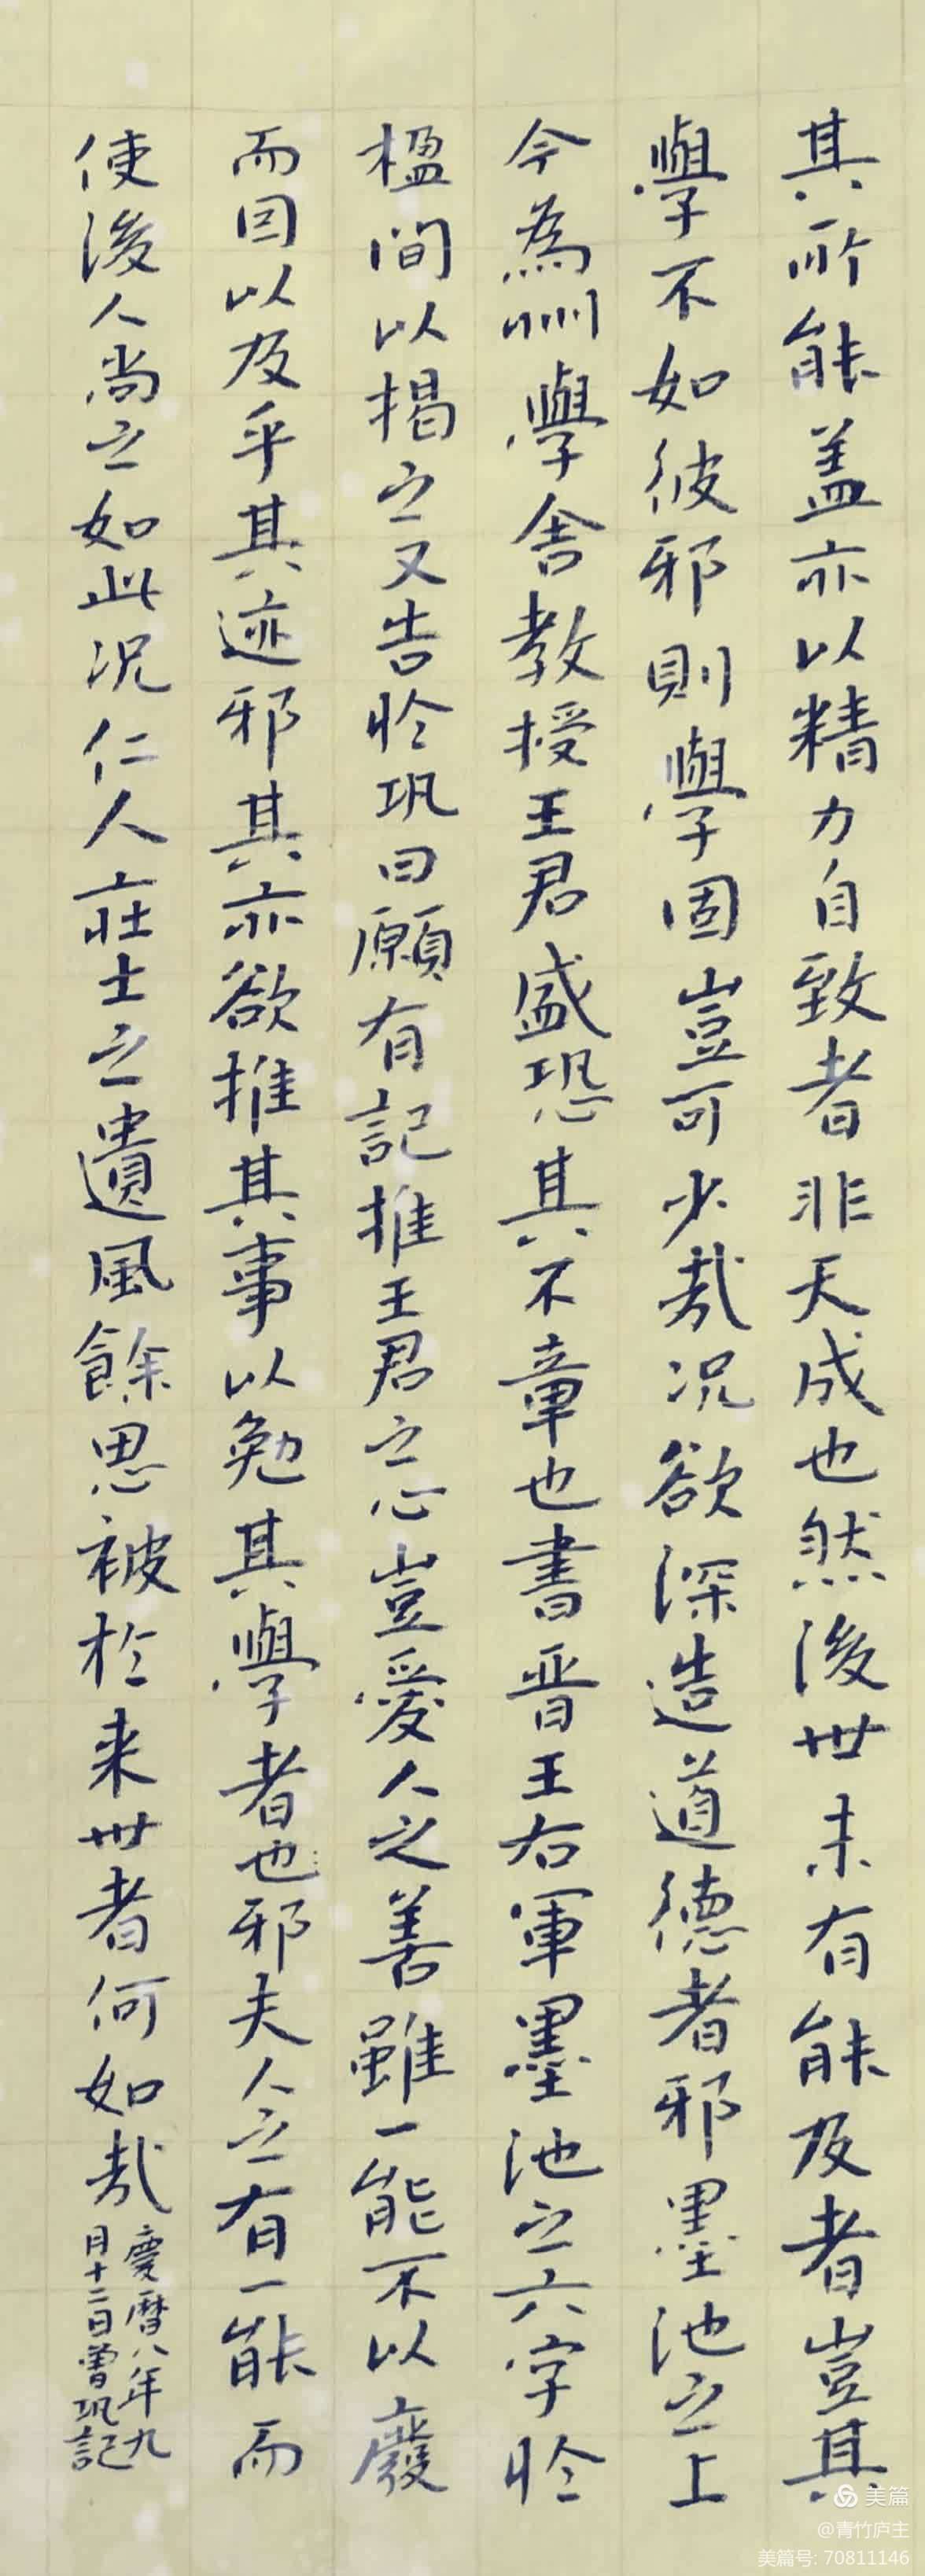 其所能盖亦以精力自致者非天成也然後世未有能及者豈其
學不如彼邪則學固豈可少哉况欲深造道德者邪墨池之上
今為州學舍教授王君盛恐其不章也書晋王右軍墨池之六字於
楹間以揭之又告於巩曰願有記推王君之心豈愛人之善雖一能不以廢
而因以及乎其迹邪其亦欲推其事以勉其學者也邪夫人之有一能而
使後人尚之如此况仁人莊士之遺風餘思被於来世者何如哉
慶曆八年九
月十二日曾巩記
美篇
@青竹庐主
美篇号: 70811146